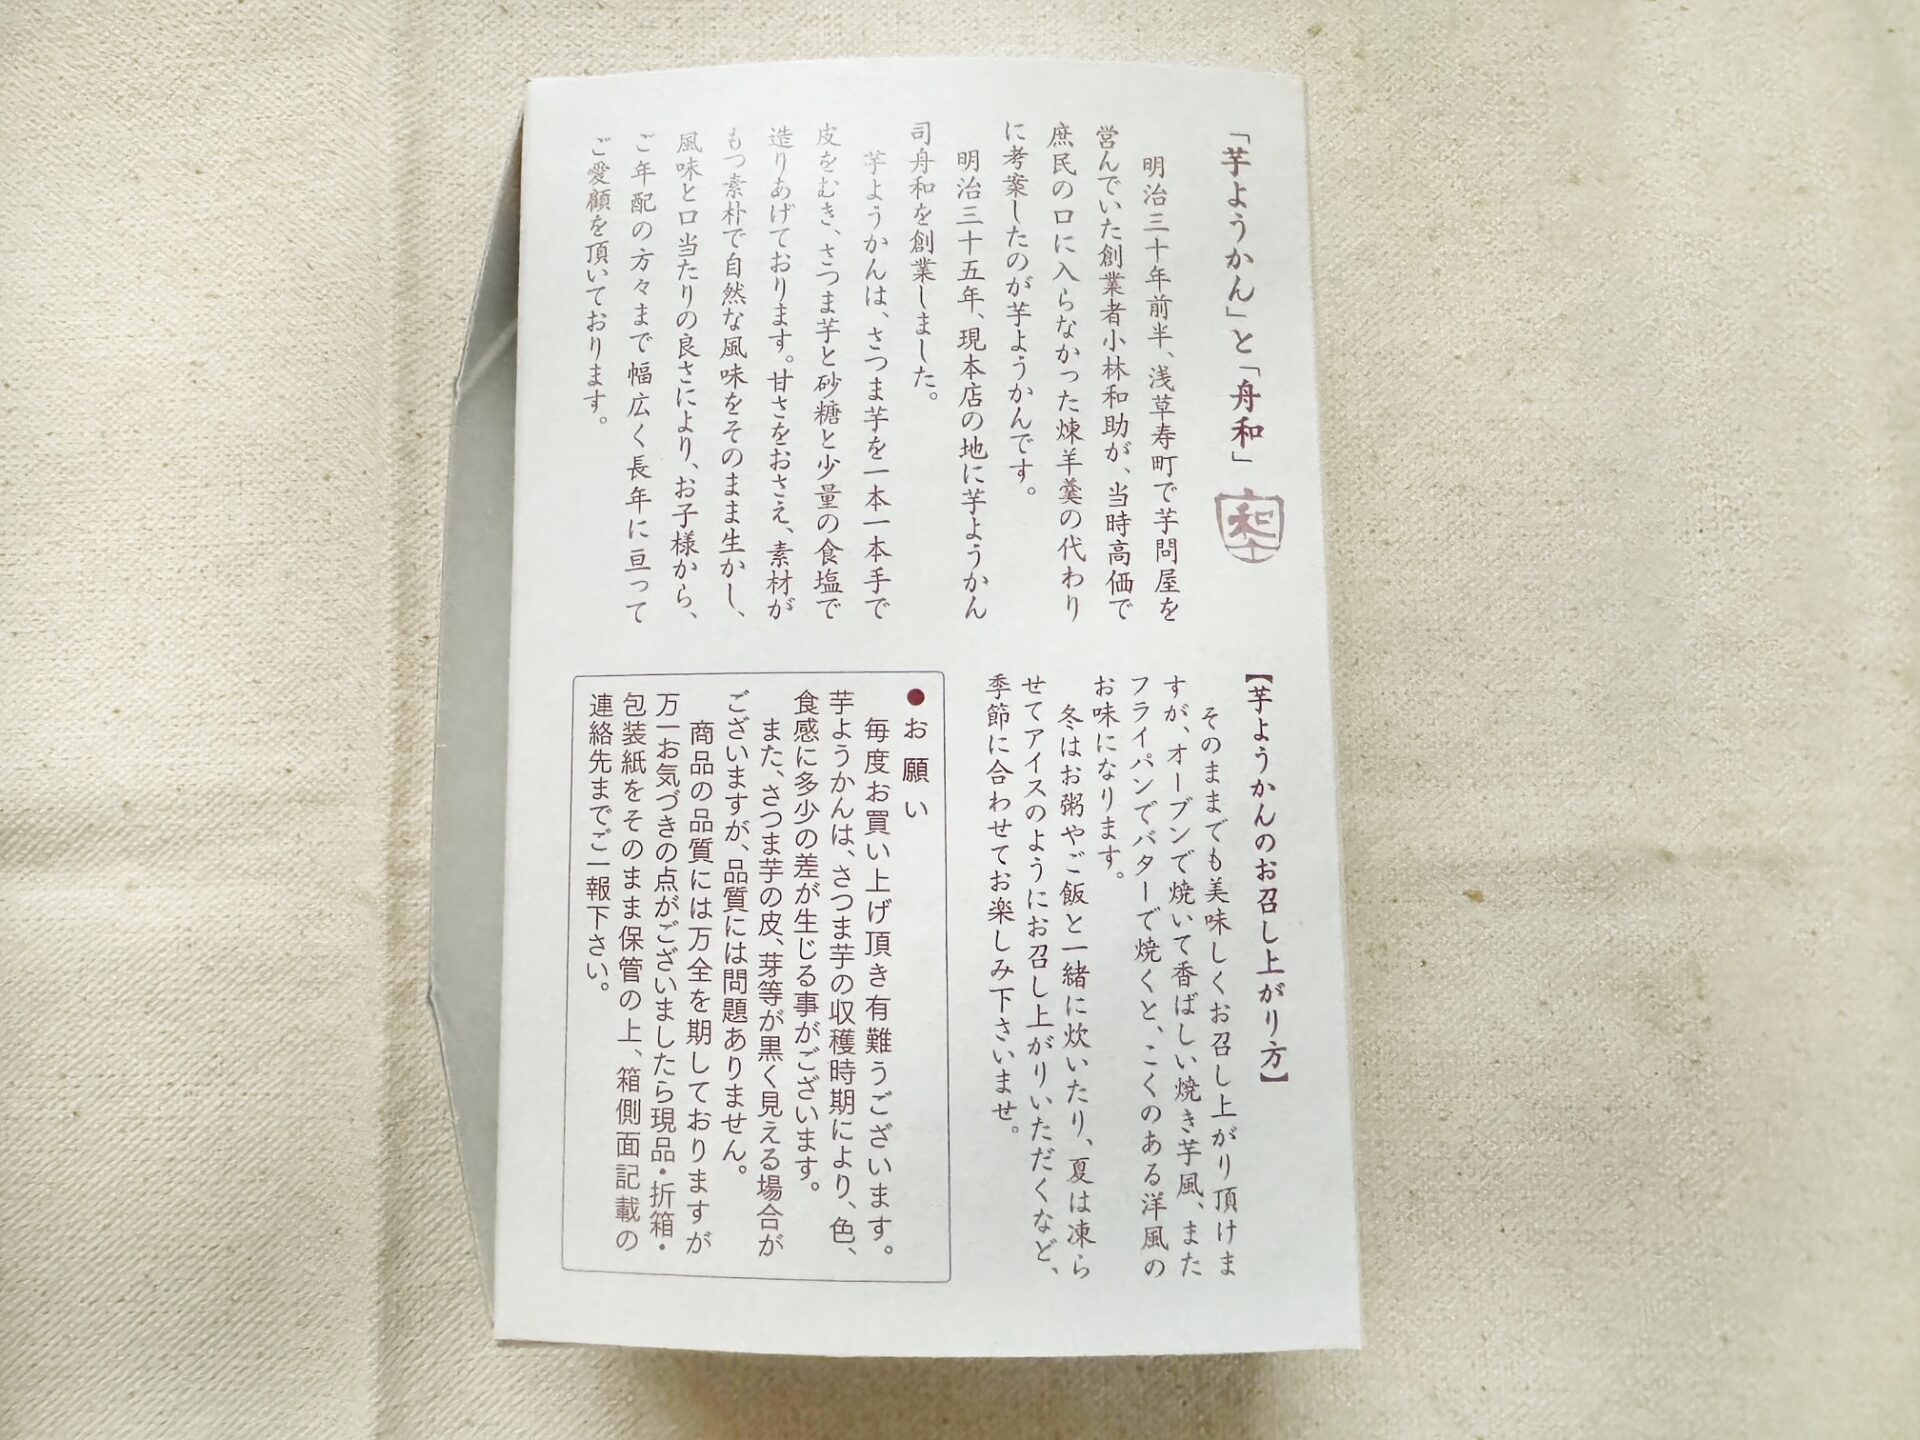 「芋ようかん」と「舟和」
明治三十年前半、浅草寿町で芋問屋を
営んでいた創業者小林和助が、当時高価で
庶民の口に入らなかった煉羊羹の代わり
に考案したのが芋ようかんです。
明治三十五年、現本店の地に芋ようかん
司舟和を創業しました。
芋ようかんは、さつま芋を一本一本手で
皮をむき、さつま芋と砂糖と少量の食塩で
造りあげております。甘さをおさえ、素材が
もつ素朴で自然な風味をそのまま生かし、
風味と口当たりの良さにより、お子様から、
ご年配の方々まで幅広く長年に亘って
ご愛顧を頂いております。
【芋ようかんのお召し上がり方】
そのままでも美味しくお召し上がり頂けま
すが、オーブンで焼いて香ばしい焼き芋風、また
フライパンでバターで焼くと、こくのある洋風の
お味になります。
冬はお粥やご飯と一緒に炊いたり、夏は凍ら
せてアイスのようにお召し上がりいただくなど、
季節に合わせてお楽しみ下さいませ。
●お願い
毎度お買い上げ頂き有難うございます。
芋ようかんは、さつま芋の収穫時期により、色、
食感に多少の差が生じる事がございます。
また、さつま芋の皮、芽等が黒く見える場合が
ございますが、品質には問題ありません。
商品の品質には万全を期しておりますが
万一お気づきの点がございましたら現品・折箱・
包装紙をそのまま保管の上、箱側面記載の
連絡先までご一報下さい。